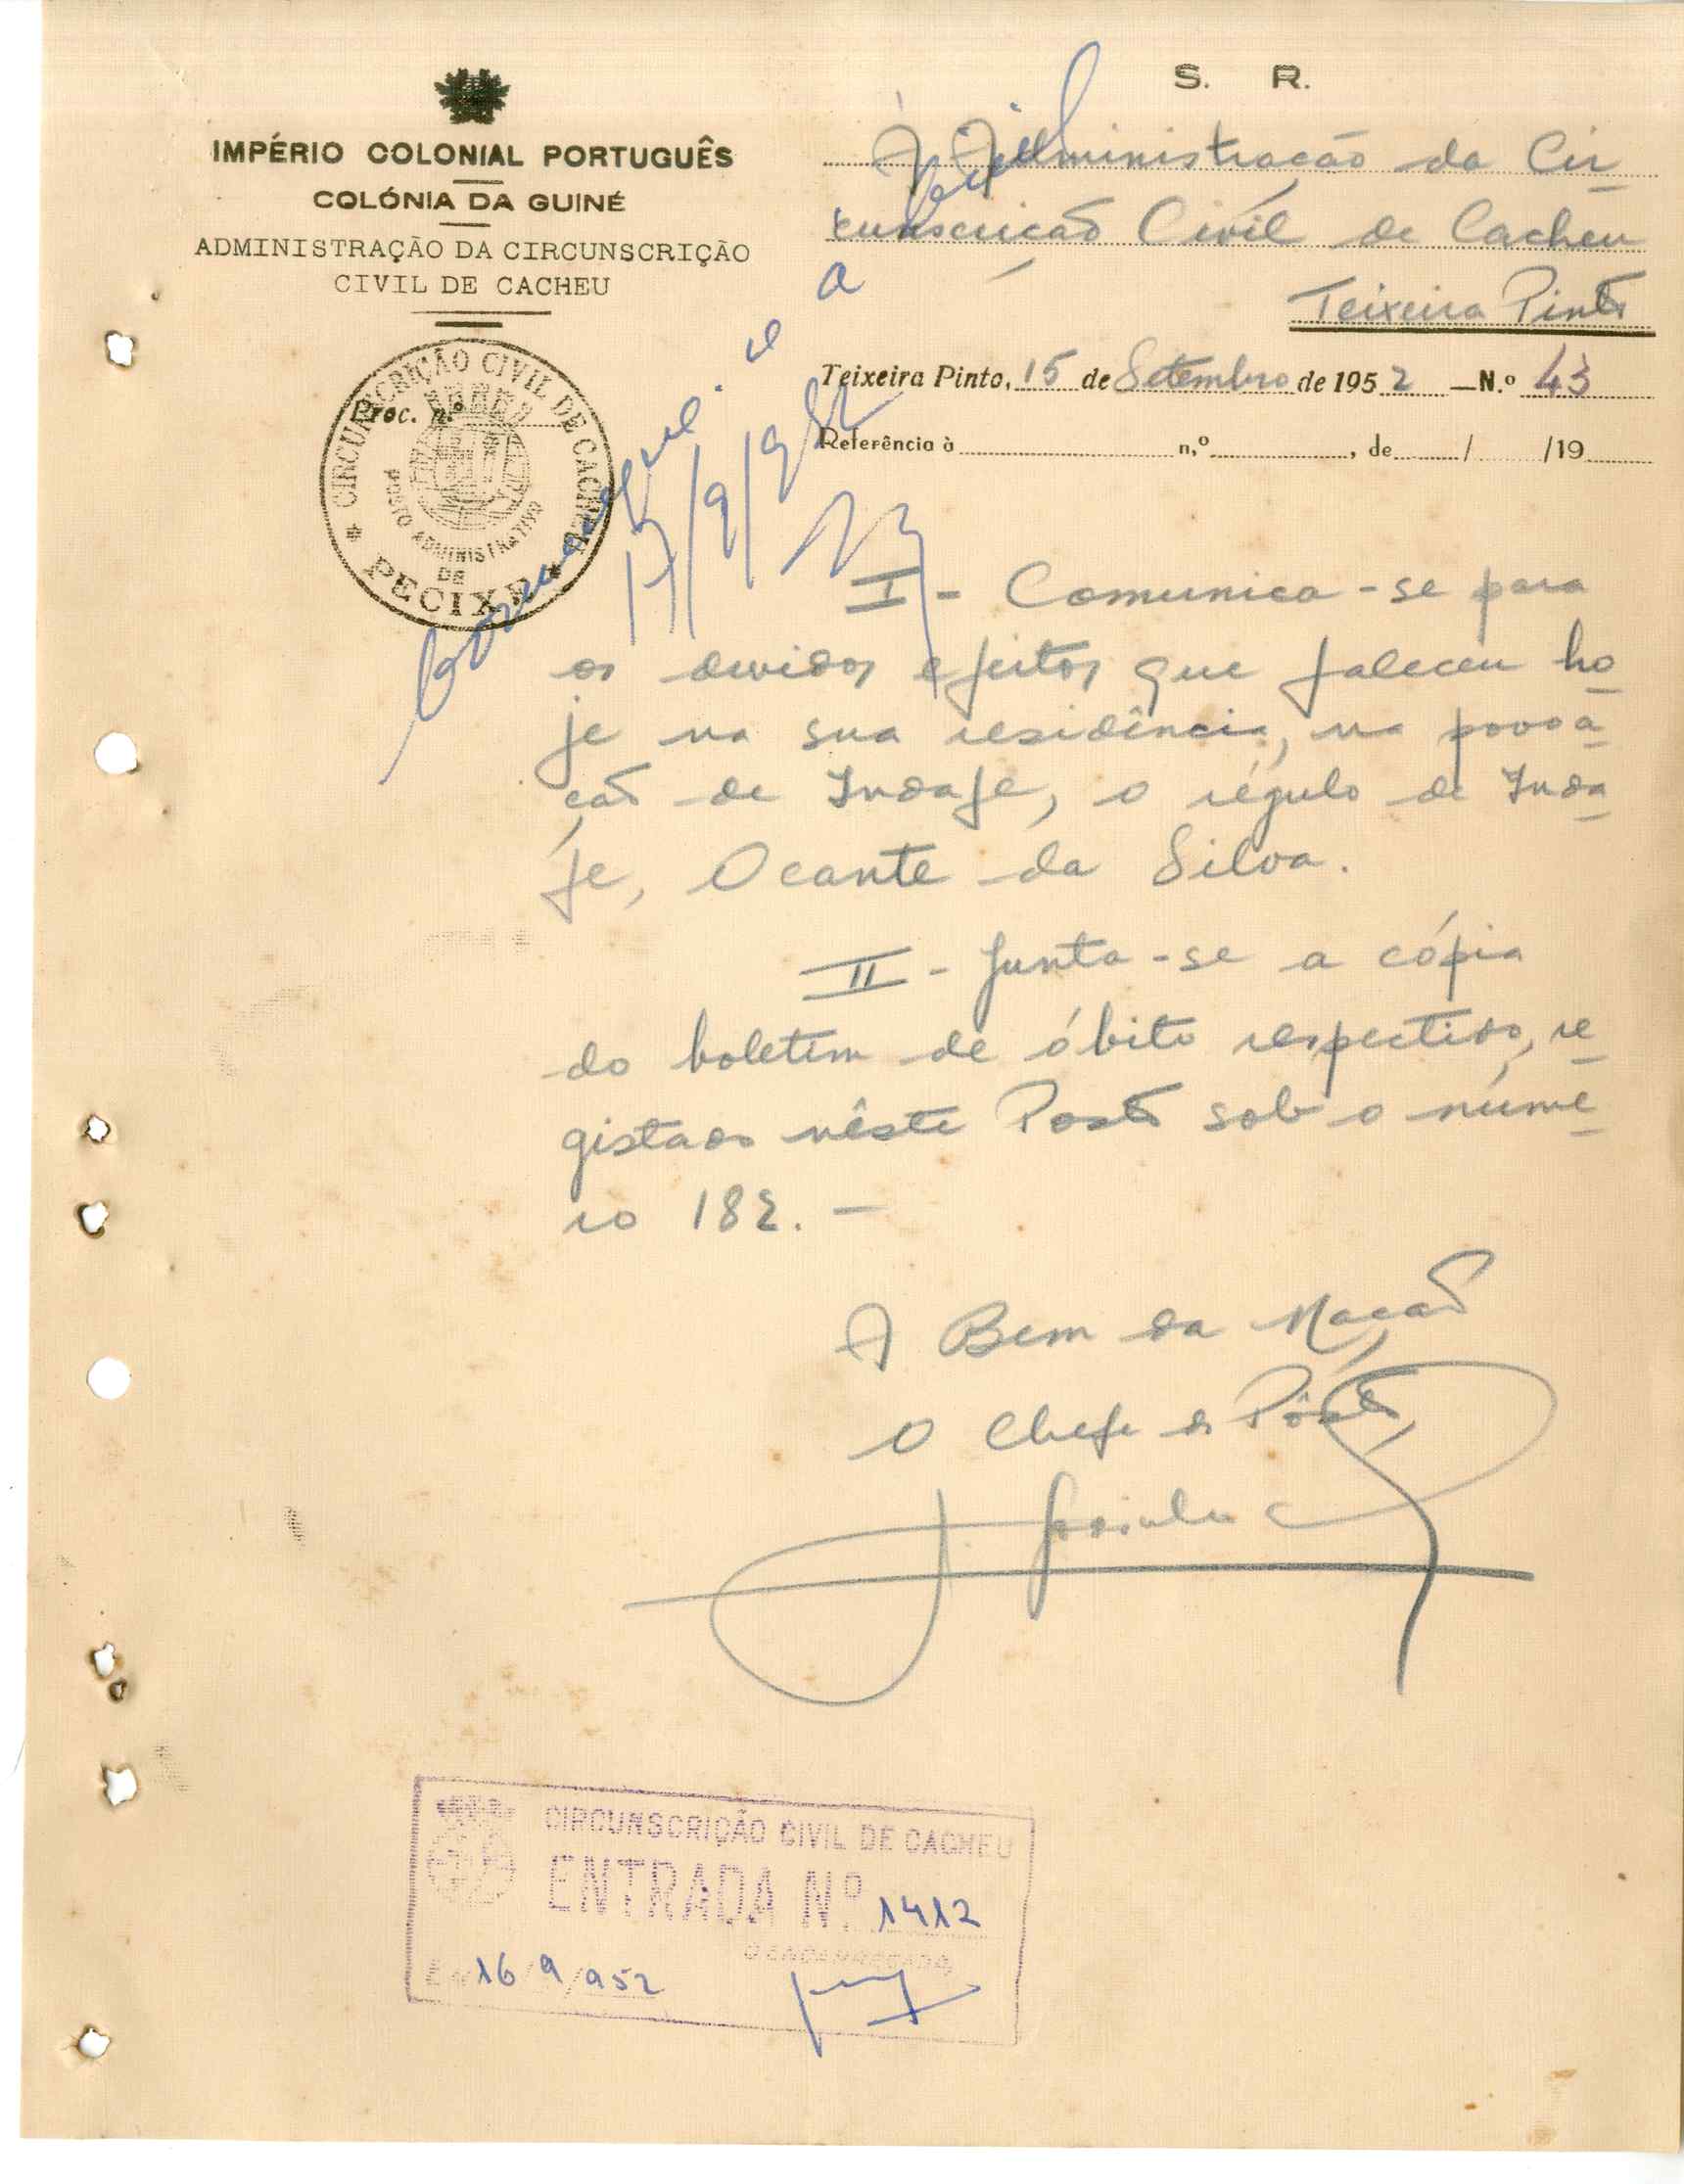 S. R.
IMPÉRIO COLONIAL PORTUGUÊS
COLÓNIA DA GUINÉ
ADMINISTRAÇÃO DA CIRCUNSCRIÇÃO
CIVIL DE CACHEU
À Administração da Cir
cunscrição Civil de Cacheu
Teixeira Pinto
Teixeira Pinto, 15 de Setembro de 1952 — N.º 43
Referência à n.º , de / /19
Proc. n.º
CIRCUNSCRIÇÃO CIVIL DE CACHEU
POSTO ADMINISTRATIVO
DE
PECIXE
17/9/952
I - Comunica-se para
os devidos efeitos que faleceu ho
je na sua residência, na povoa
ção de Indafe, o régulo de Inda
fe, Ocante da Silva.
II - Junta-se a cópia
do boletim de óbito respectivo, re
gistado nêste Posto sob o núme
ro 182. —
A Bem da Nação
O Chefe do Pôsto,
CIRCUNSCRIÇÃO CIVIL DE CACHEU
ENTRADA N.º 1412
EM 16/9/952